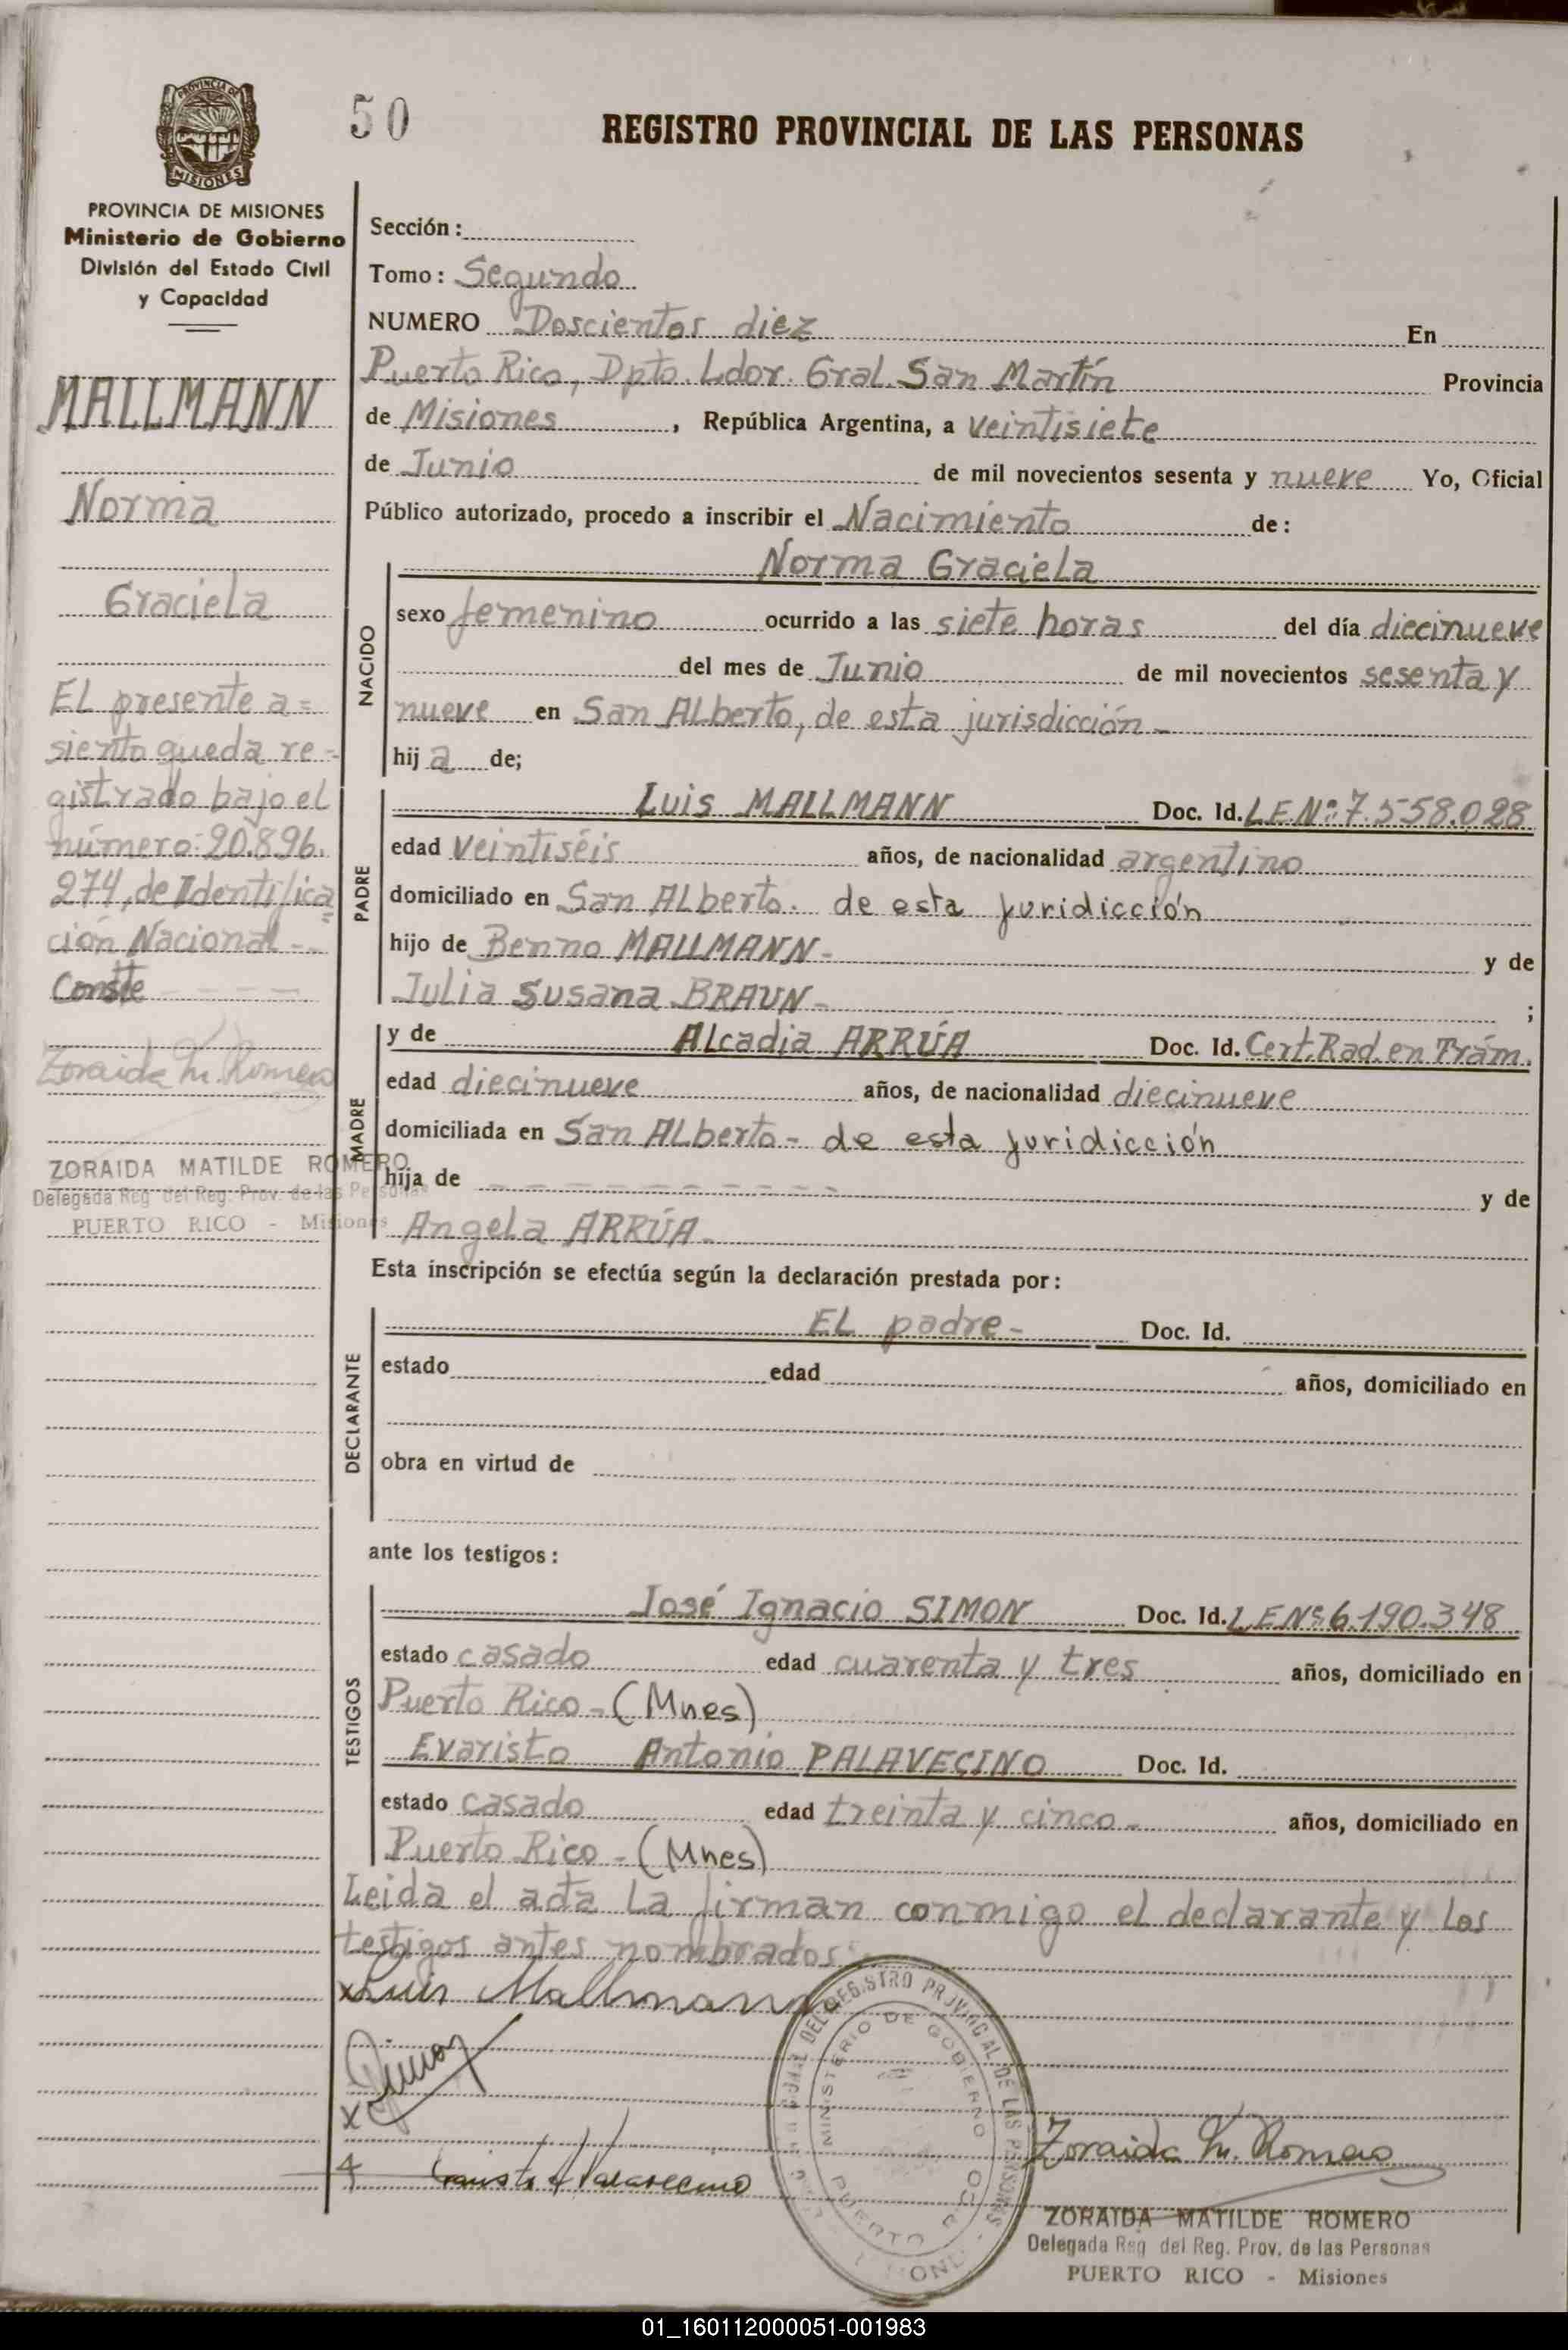 50
REGISTRO PROVINCIAL DE LAS PERSONAS
PROVINCIA DE MISIONES
MISIONES
PROVINCIA DE MISIONES
Ministerio de Gobierno
División del Estado Civil
y Capacidad
MALLMANN
Norma
Graciela
EL presente a=
siento queda re=
gistrado bajo el
número: 20.896.
274, de Identifica
ción Nacional - -
Conste - - - -
Zoraida M. Romero
ZORAIDA MATILDE ROMERO
Delegada Reg. del Reg. Prov. de las Personas
PUERTO RICO - Misiones
Sección :
Tomo : Segundo
NUMERO Doscientos diez En
Puerto Rico, Dpto. Ldor. Gral. San Martín Provincia
de Misiones , República Argentina, a veintisiete
de Junio de mil novecientos sesenta y nueve Yo, Oficial
Público autorizado, procedo a inscribir el Nacimiento de :
NACIDO
Norma Graciela
sexo femenino ocurrido a las siete horas del día diecinueve
del mes de Junio de mil novecientos sesenta y
nueve en San ALberto, de esta jurisdicción -
hij a de;
PADRE
Luis MALLMANN Doc. Id. L E Nº: 7.558.028
edad veintiséis años, de nacionalidad argentino
domiciliado en San ALberto. de esta juridicción
hijo de Benno MALLMANN - y de
Julia Susana BRAUN - ;
MADRE
y de ALcadia ARRÚA Doc. Id. Cert. Rad. en Trám.
edad diecinueve años, de nacionalidad diecinueve
domiciliada en San ALberto - de esta juridicción
hija de - - - - - - - - - - y de
Angela ARRÚA -
Esta inscripción se efectúa según la declaración prestada por :
DECLARANTE
EL padre - Doc. Id.
estado edad años, domiciliado en
obra en virtud de
ante los testigos :
TESTIGOS
José Ignacio SIMON Doc. Id. L E Nº: 6.190.348
estado casado edad cuarenta y tres años, domiciliado en
Puerto Rico - (Mnes)
Evaristo Antonio PALAVECINO Doc. Id.
estado casado edad treinta y cinco - años, domiciliado en
Puerto Rico - (Mnes)
Leida el acta La firman conmigo el declarante y Los
testigos antes nombrados:
x Luis Mallmann
x Simon
Evaristo A Palavecino
DEL REGISTRO PROVINCIAL DE LAS PERSONAS
MINISTERIO DE GOBIERNO
PUERTO RICO
Zoraida M. Romero
ZORAIDA MATILDE ROMERO
Delegada Reg del Reg. Prov. de las Personas
PUERTO RICO - Misiones
01_160112000051-001983